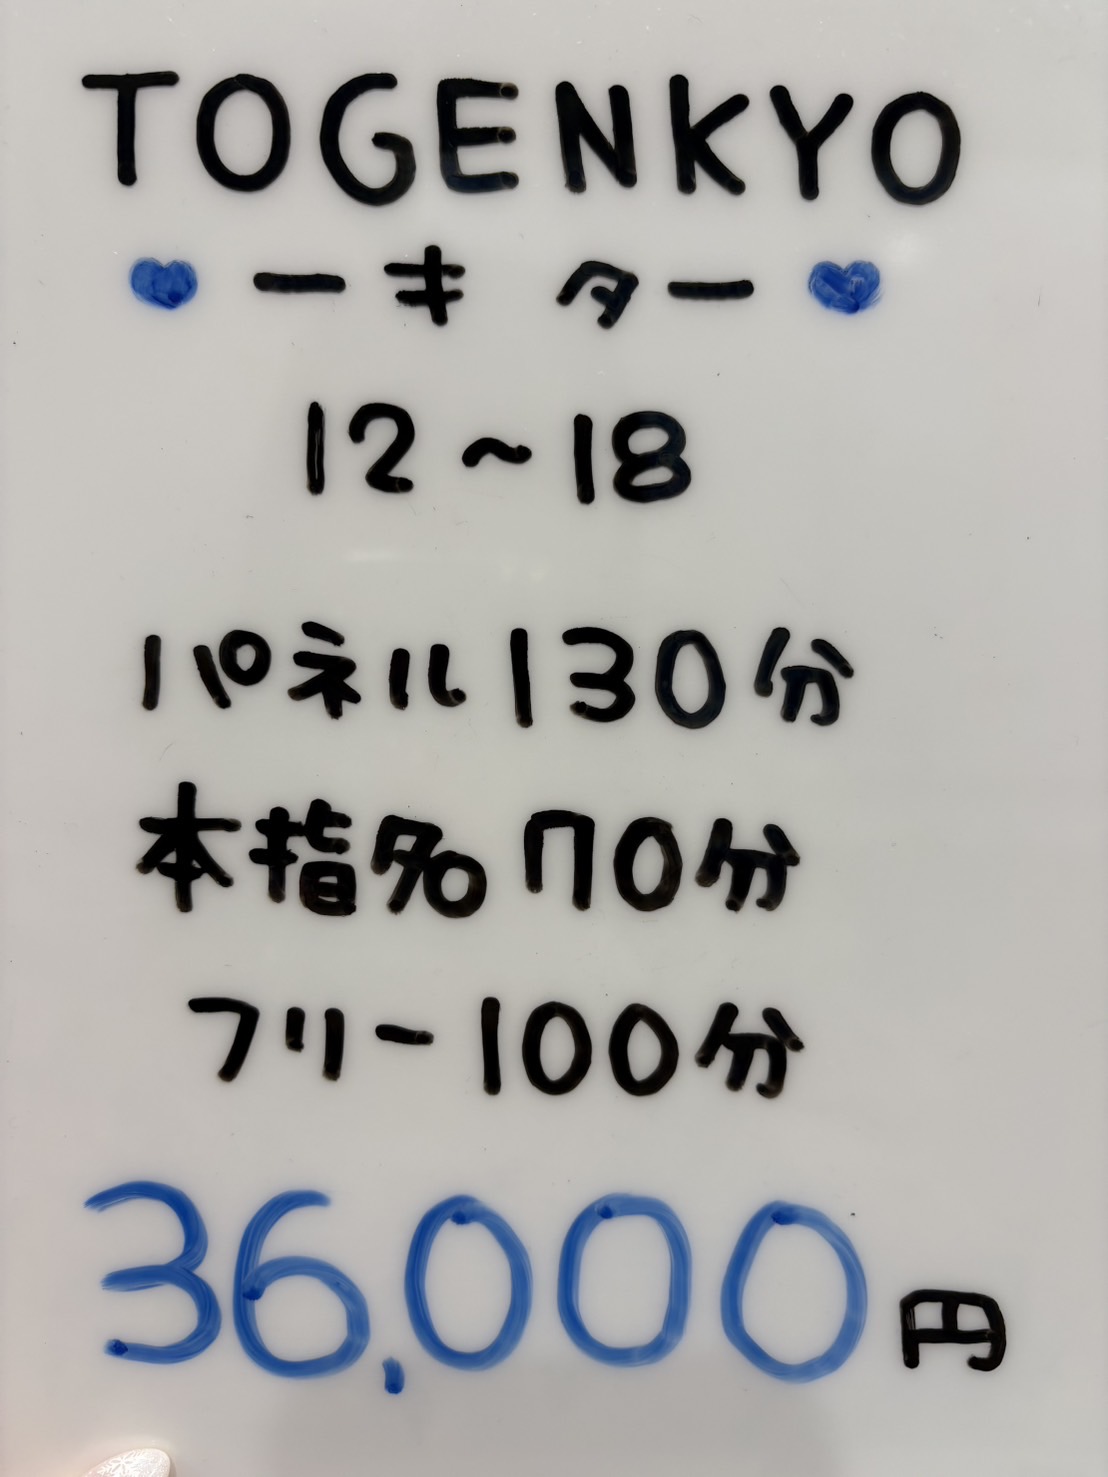 TOGENKYO
ーキ ター
12〜18
パネル130分
本指名70分
フリー100分
36,000円